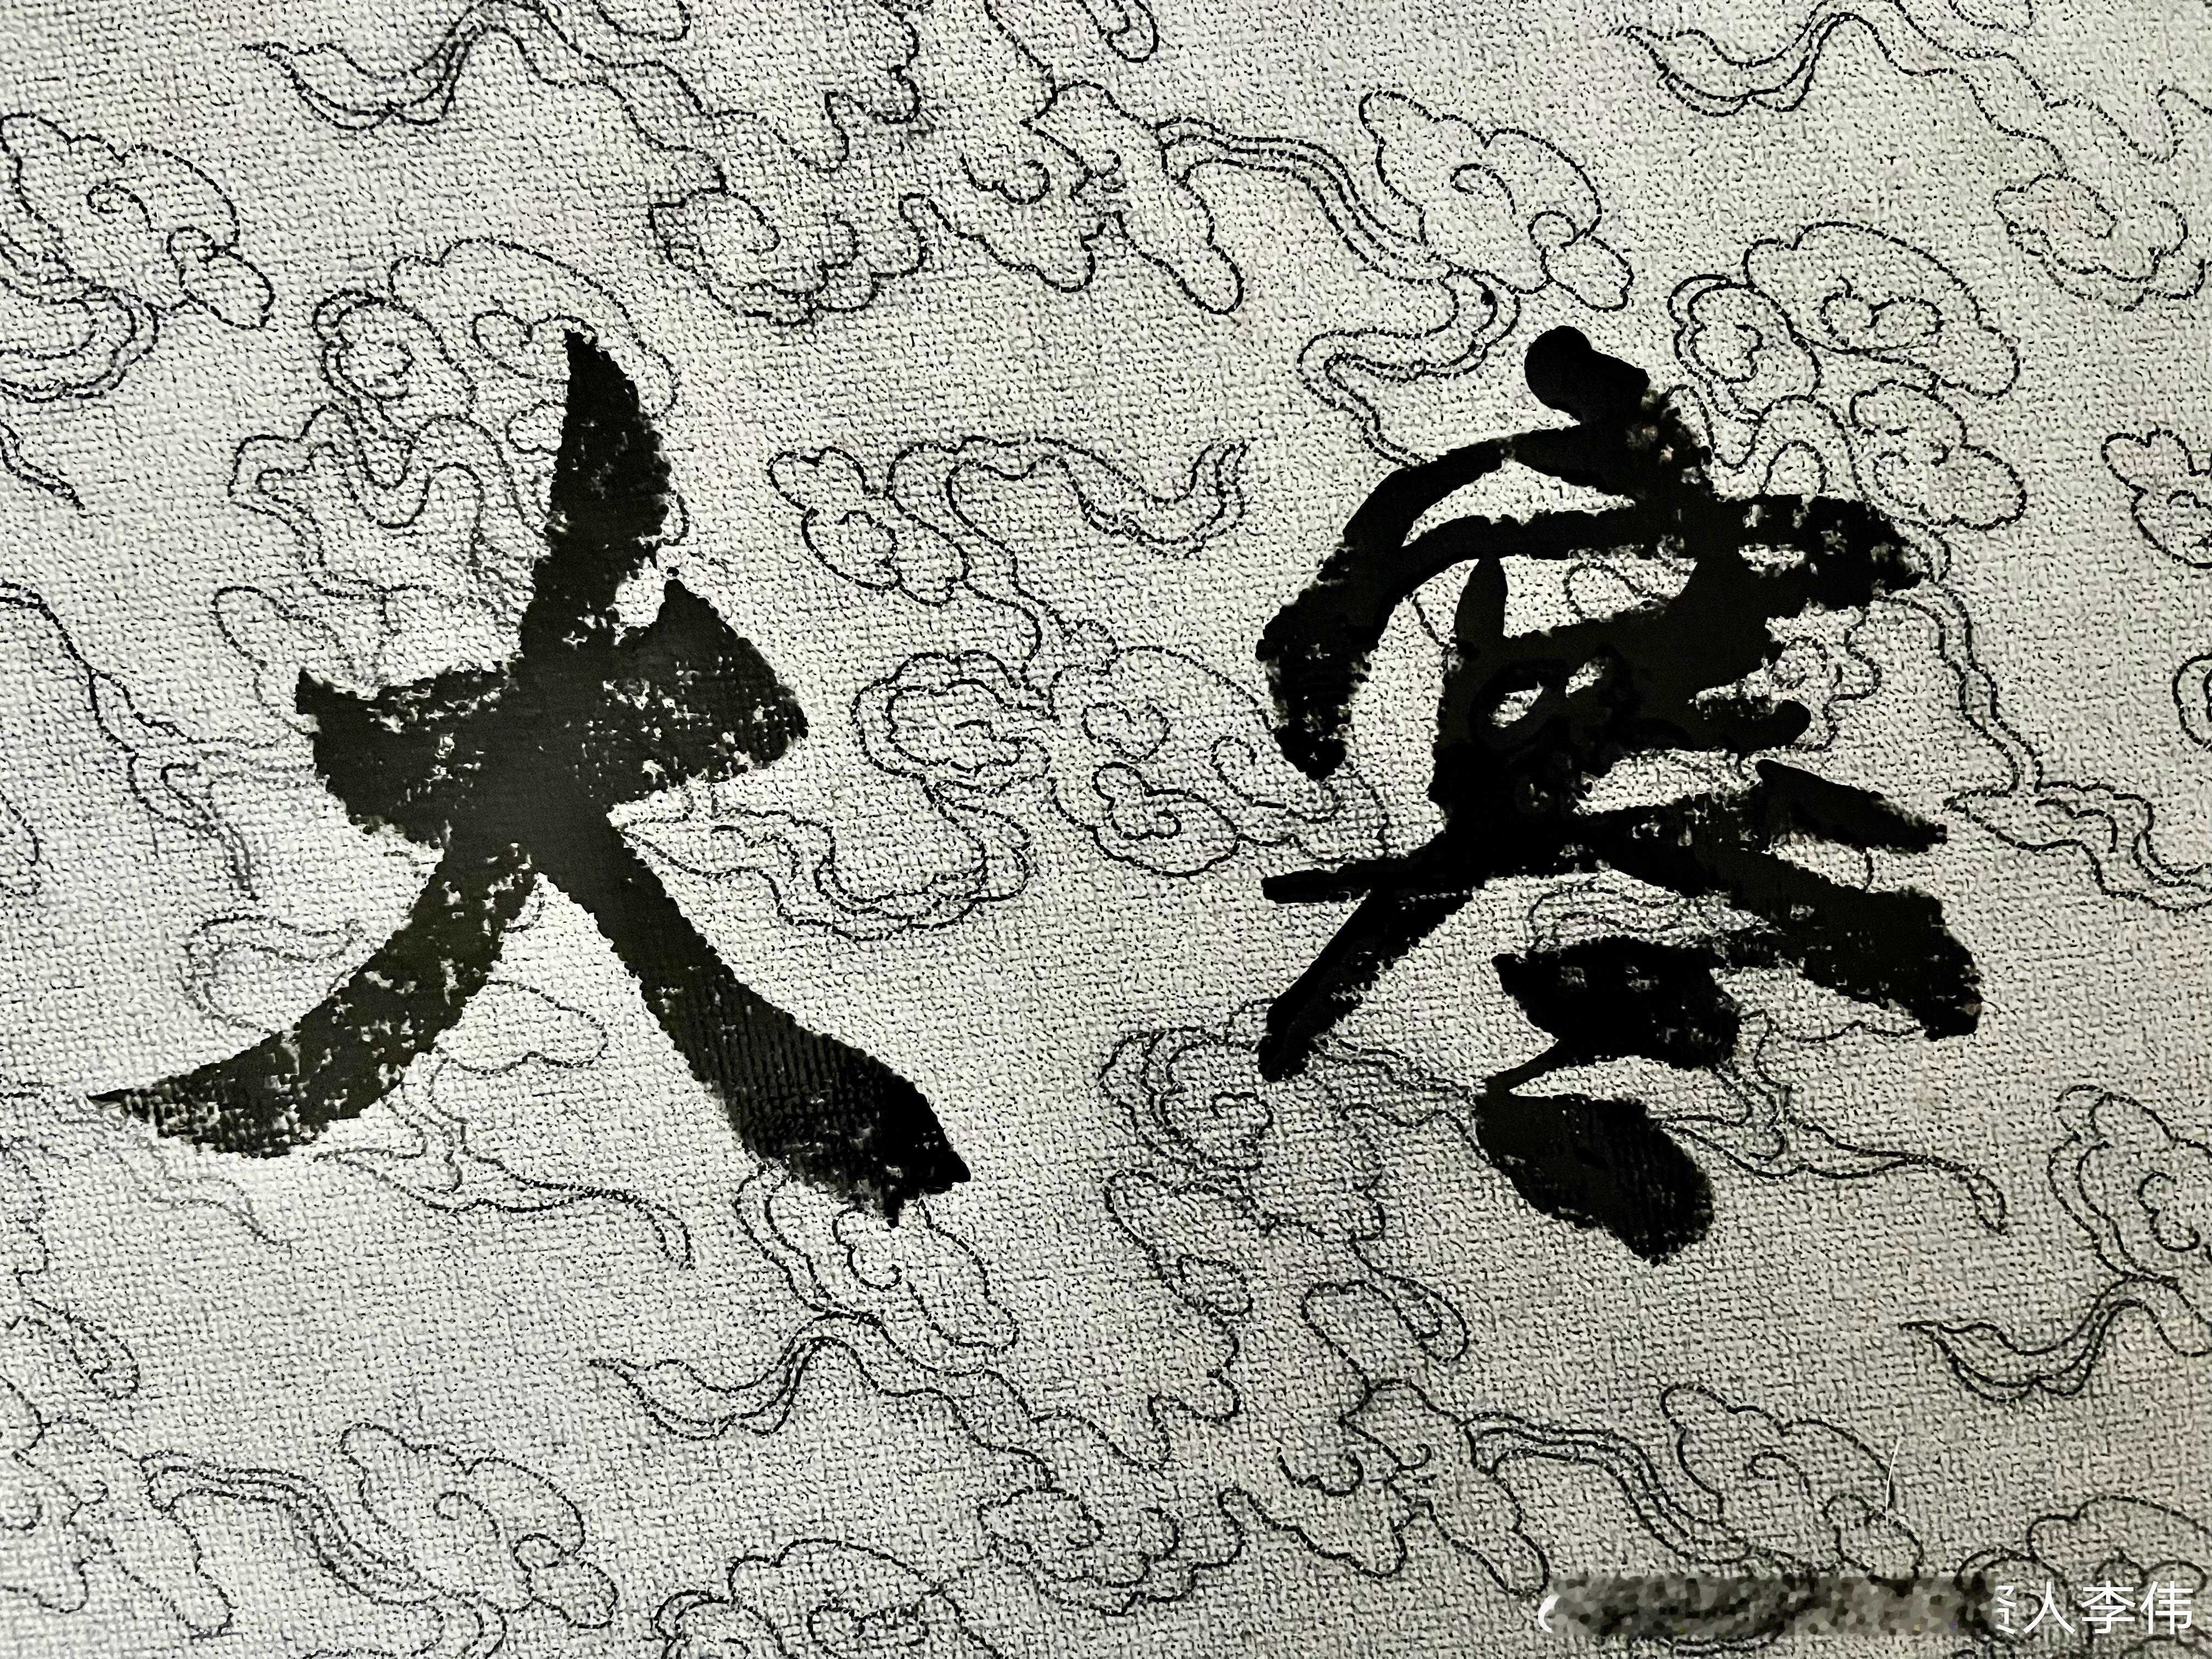 大寒
人李伟